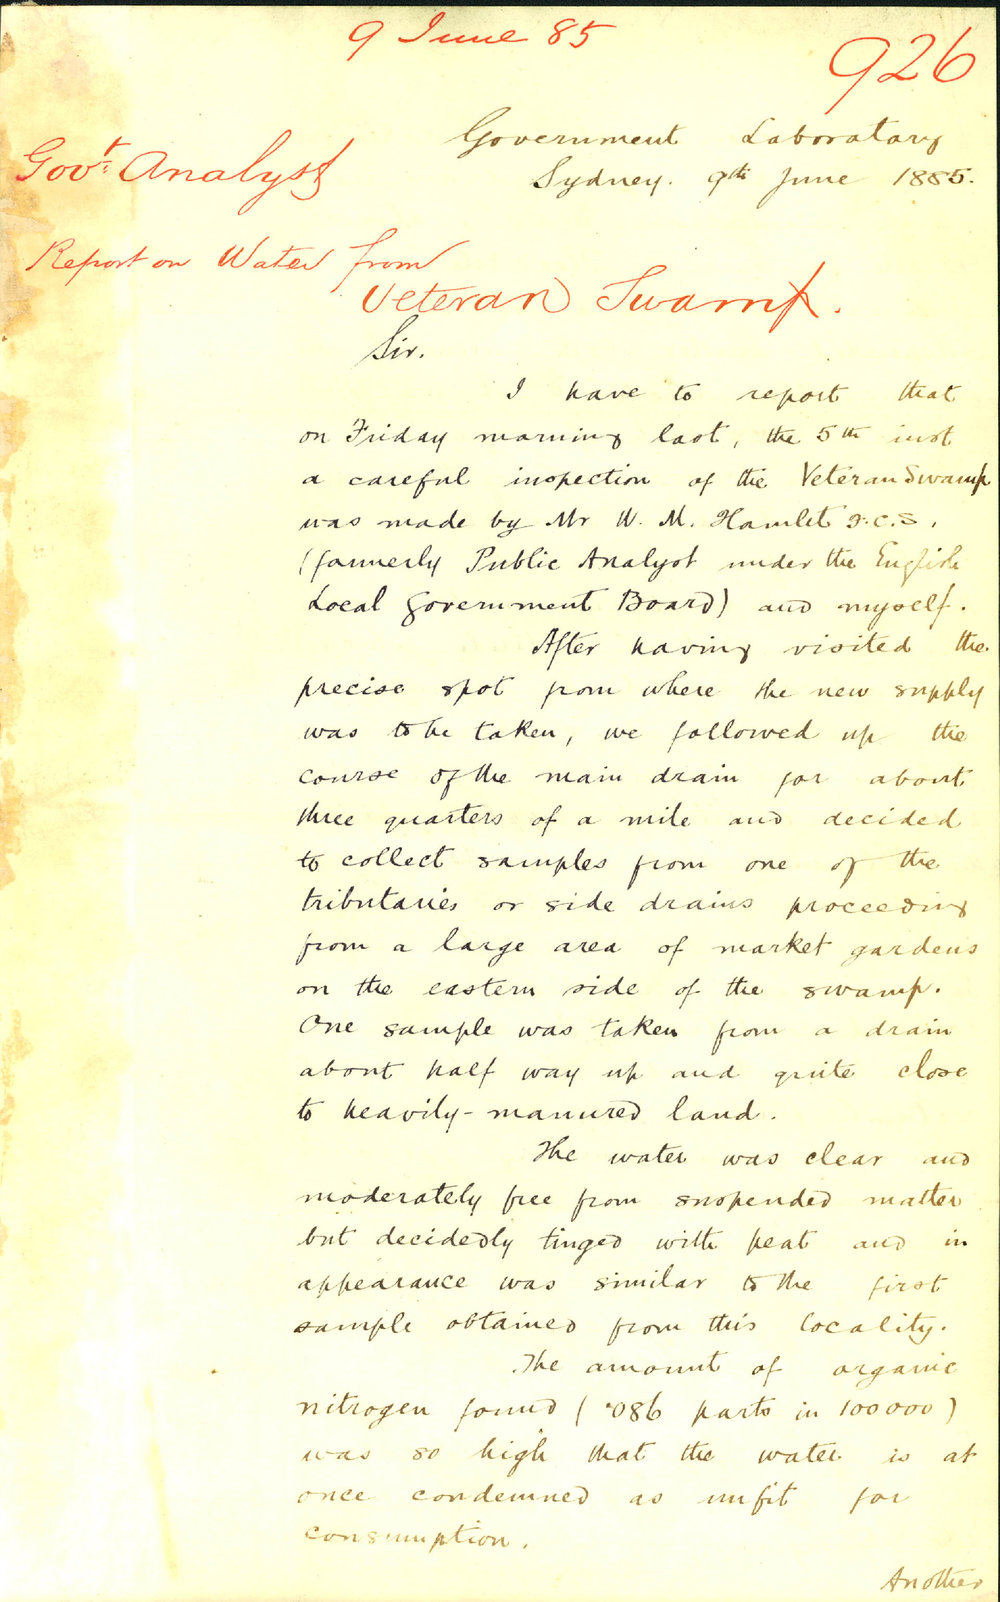 9 June 85
926
Government Laboratory
Govt. Analyst
Sydney. 9th June 1885.
Report on Water from
Veteran Swamp.
Sir.
I have to report that
on Friday morning last, the 5th inst
a careful inspection of the Veteran Swamp
was made by Mr W. M. Hamlet F.C.S.
(formerly Public Analyst under the English
Local Government Board) and myself.
After having visited the
precise spot from where the new supply
was to be taken, we followed up the
course of the main drain for about
three quarters of a mile and decided
to collect samples from one of the
tributaries or side drains proceeding
from a large area of market gardens
on the eastern side of the swamp.
One sample was taken from a drain
about half way up and quite close
to heavily-manured land.
The water was clear and
moderately free from suspended matter
but decidedly tinged with peat and in
appearance was similar to the first
sample obtained from this locality.
The amount of organic
nitrogen found (·086 parts in 100000)
was so high that the water is at
once condemned as unfit for
consumption.
Another